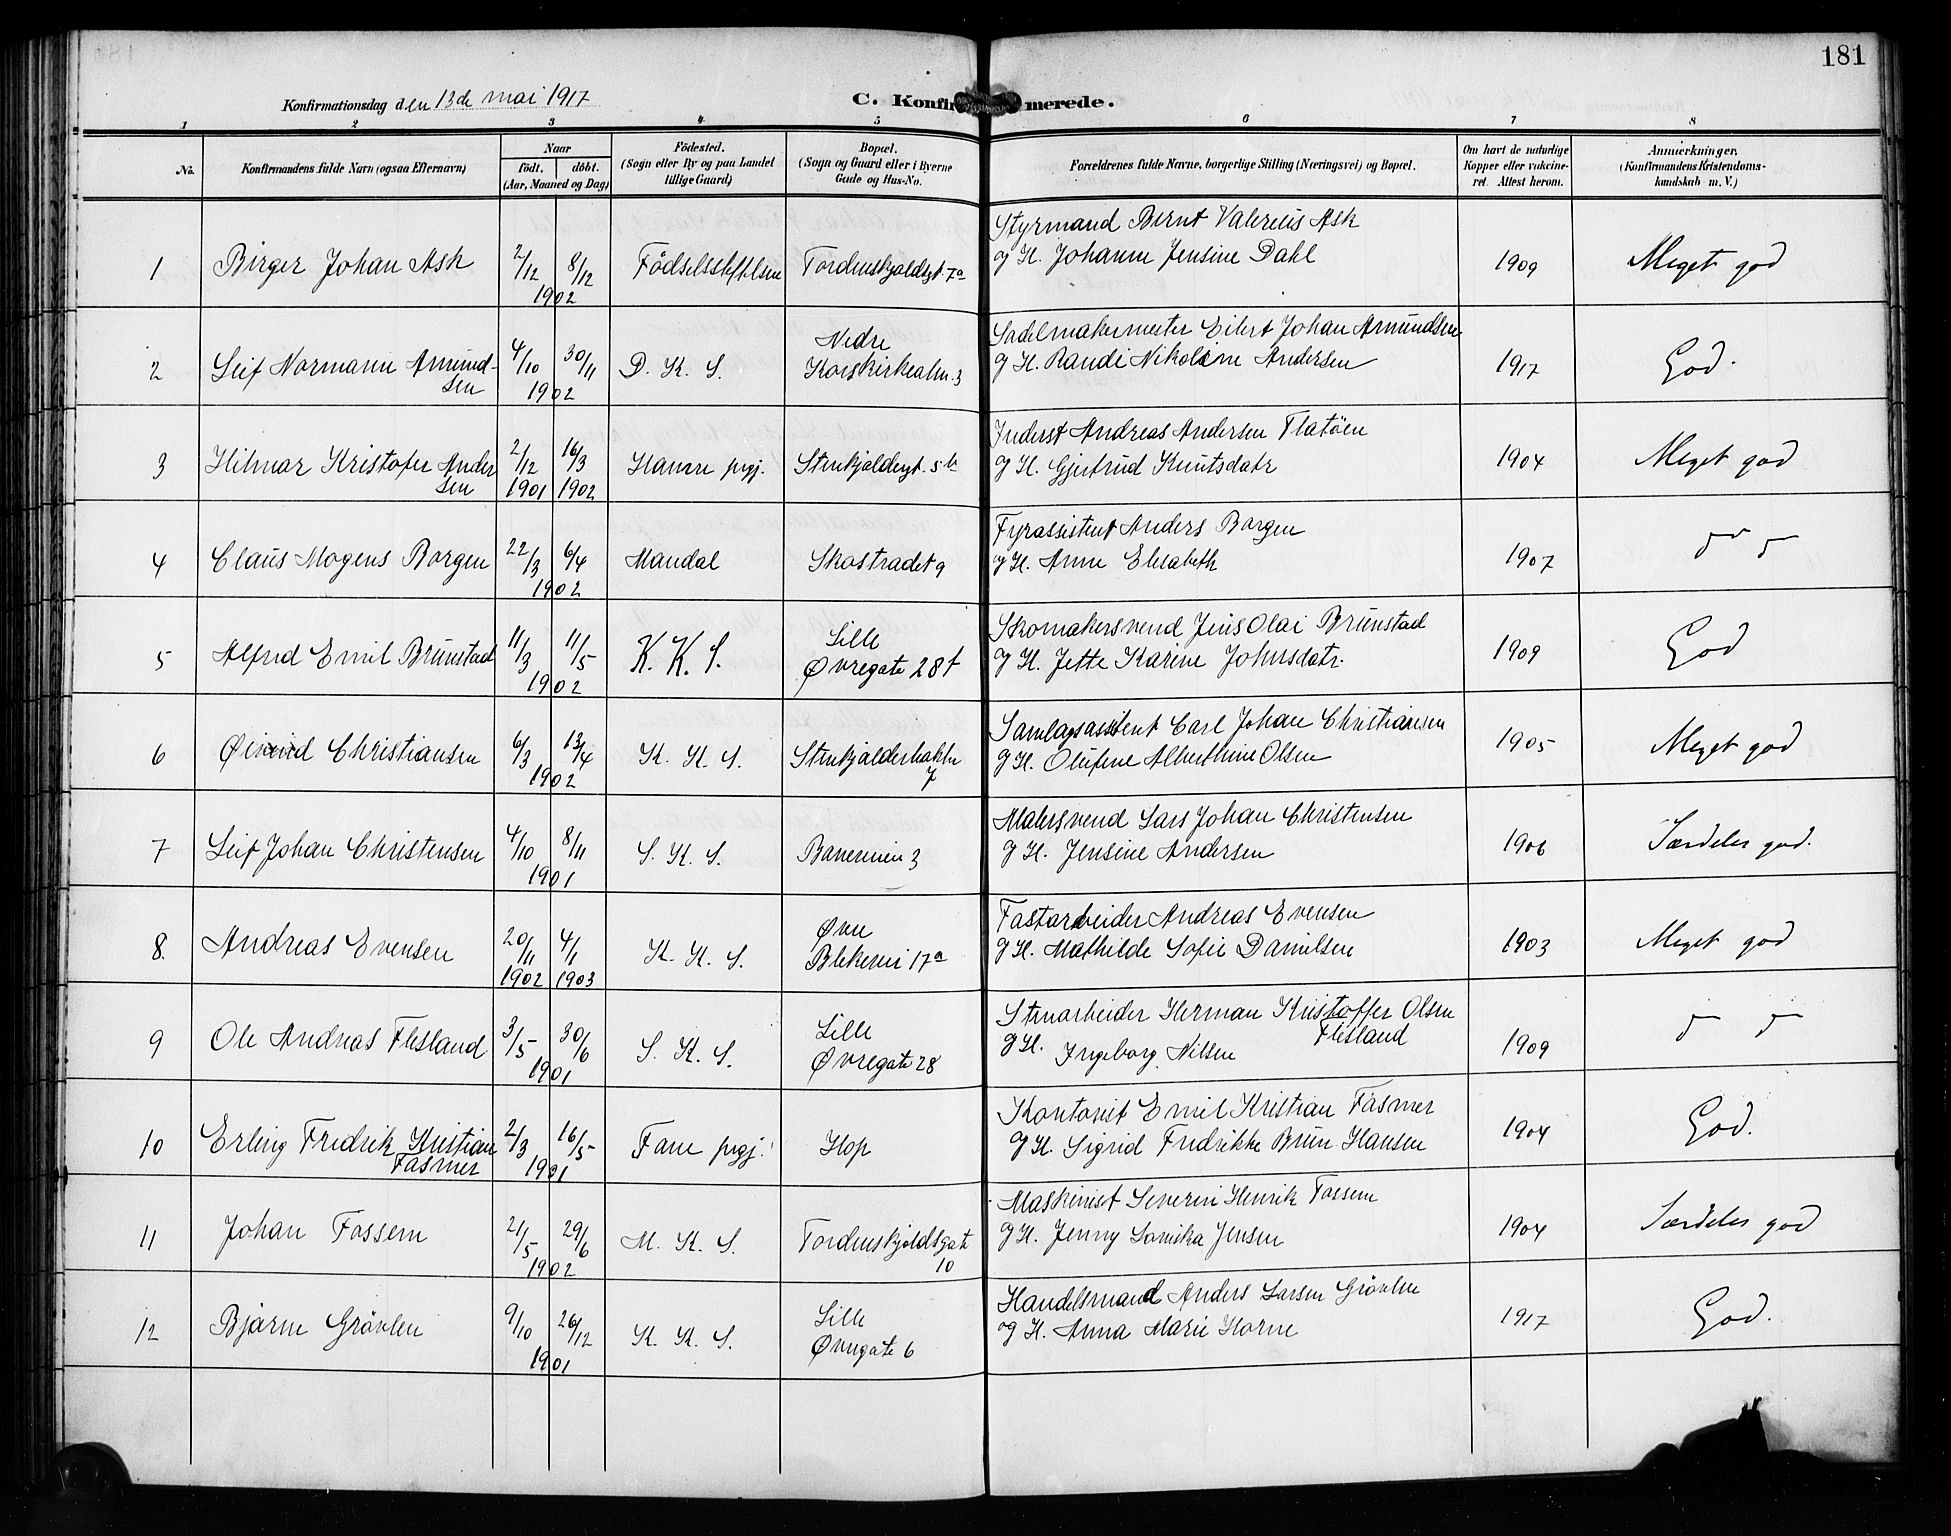 181
Konfirmationsdag den 13de mai 1917
C. Konfirmerede.
1 2 3 4 5 6 7 8
No.
Konfirmandens fulde Navn (ogsaa Efternavn)
Naar
født. døbt.
(Aar, Maaned og Dag)
Fødested.
(Sogn eller By og paa Landet
tillige Gaard)
Bopæl.
(Sogn og Gaard eller i Byerne
Gade og Hus-No.
Forældrenes fulde Navne, borgerlige Stilling (Næringsvei) og Bopæl.
Om havt de naturlige
Kopper eller vakcine-
ret. Attest herom.
Anmærkninger.
(Konfirmandens Kristendoms-
kundskab m. V.)
1 Birger Johan Ask 2/12 8/12 1902 Födselsstiftelsen Tordenskjoldsgt. 7a
Styrmand Bernt Valerius Ask
og H. Johanne Jensine Dahl
1909 Meget god
2 Leif Normann Amund-
sen 4/10 30/11 1902 D. K. S.
Nedre
Korskirkealm. 3
Sadelmakermester Eilert Johan Amundsen
og H. Randi Nikoline Andersen
1917 God.
3 Hilmar Kristofer Ander
sen 2/12 1901 16/3 1902 Hamre prgj. Stenkjeldergt. 5b
Inderst Andreas Andersen Flatöen
og H. Gjertrud Knutsdatr
1904 Meget god
4 Claus Mogens Borgen 22/3 6/4 1902 Mandal Skostrædet 9
Fyrassistent Anders Borgen
og H. Anne Elisabeth
1907 do do
5 Alfred Emil Brunstad 11/3 11/5 1902 K. K. S.
Lille
Øvregate 28f
Skomakersvend Jens Olai Brunstad
og H. Jette Karine Johnsdatr.
1909 God
6 Øivind Christiansen 6/3 13/4 1902 K. K. S. Stenkjelderbakken
7
Samlagsassistent Carl Johan Christiansen
og H. Olufine Alberthine Olsen
1905 Meget god
7 Leif Johan Christensen 4/10 8/11 1901 S. K. S. Baneveien 3
Malersvend Lars Johan Christensen
og H. Jensine Andersen
1906 Særdeles god.
8. Andreas Evensen 20/11 1902 4/1 1903 K. K. S.
Øvre
Blekevei 17a
Fastarbeider Andreas Evensen
og H. Mathilde Sofie Danielsen
1903 Meget god
9 Ole Andreas Flesland 3/5 30/6 1901 S. K. S.
Lille
Øvregate 28
Stenarbeider Herman Kristoffer Olsen
Flesland
og H. Ingeborg Nilsen
1909 do do
10 Erling Fredrik Kristian
Fasmer 2/3 16/5 1901 Fane prgj. Hop
Kontorist Emil Kristian Fasmer
og H. Sigrid Fredrikke Brun Hansen
1904 God.
11 Johan Fossem 21/5 29/6 1902 M. K. S. Tordenskjoldsgate
10
Maskinist Severin Henrik Fossem
og H. Jenny Loviska Jensen
1904 Særdeles god
12 Bjarne Grövlen 9/10 26/12 1901 K. K. S.
Lille
Øvregate 6
Handelsmand Anders Larsen Grövlen
og H. Anna Marie Horne
1917 God.